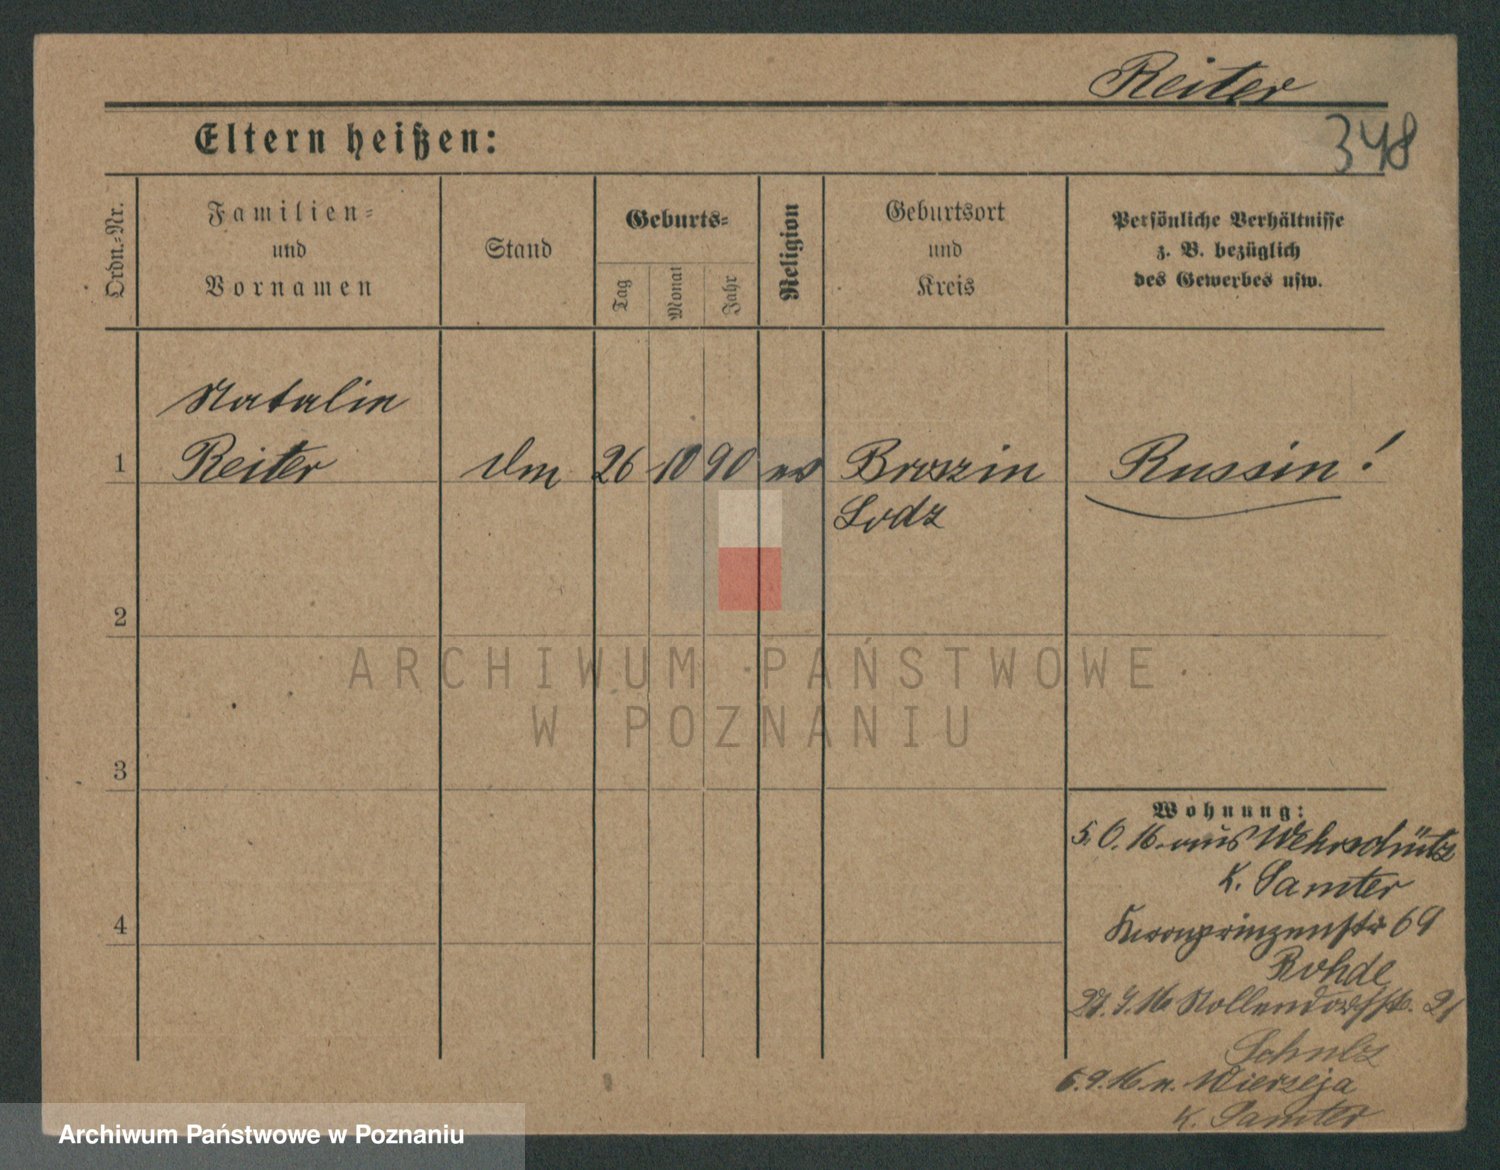 Reiter
348
Eltern heißen:
Ordn.-Nr.
Familien-
und
Vornamen
Stand
Geburts-
Tag
Monat
Jahr
Religion
Geburtsort
und
Kreis
Persönliche Verhältnisse
z. B. bezüglich
des Gewerbes usw.
Natalie
1 Reiter 26 10 90 ev Russin!
Lodz
2
3
4
Wohnung:
16. aus
K. Samter
Kronprinzenstr 69
Rohde
16 Nollendorfstr. 21
Schulz
6.9.16 n. Wierzeja
K. Samter
ARCHIWUM PAŃSTWOWE
W POZNANIU
Archiwum Państwowe w Poznaniu